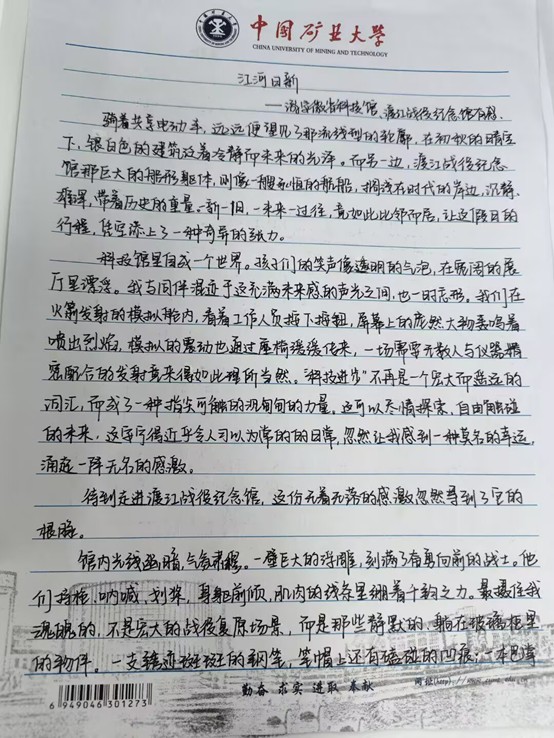 中国矿业大学
CHINA UNIVERSITY OF MINING AND TECHNOLOGY
江河日新
——游安徽省科技馆、渡江战役纪念馆有感
骑着共享电动车，远远便望见了那流线型的轮廓，在初秋的晴空
下，银白色的建筑泛着冷静而未来的光泽。而另一边，渡江战役纪念
馆那巨大的船形躯体，则像一艘永恒的航船，搁浅在时代的岸边，沉静、
雄浑，带着历史的重量。一新一旧，一未来一过往，竟如此比邻而居，让这假日的
行程，凭空添上了一种奇异的张力。
科技馆里自成一个世界。孩子们的笑声像透明的气泡，在宽阔的展
厅里漂浮。我与同伴混迹于这充满未来感的声光之间，也一时忘形。我们在
火箭发射的模拟舱内，看着工作人员按下按钮，屏幕上的庞然大物轰鸣着
喷出烈焰，模拟的震动也通过座椅缓缓传来，一场需要无数人与仪器精
密配合的发射竟来得如此理所当然。“科技进步”不再是一个宏大而遥远的
词汇，而成了一种指尖可触的沉甸甸的力量。这可以尽情探索、自由触碰
的未来，这寻常得近乎令人习以为常的的日常，忽然让我感到一种莫名的幸运，
涌起一阵无名的感激。
待到走进渡江战役纪念馆，这份无着无落的感激忽然寻到了它的
根脉。
馆内光线幽暗，气氛肃穆。一壁巨大的浮雕，刻满了奋勇向前的战士。他
们持枪、呐喊、划桨，身躯前倾，肌肉的线条里绷着千钧之力。最摄住我
魂魄的，不是宏大的战役复原场景，而是那些静默的、躺在玻璃柜里
的物件。一支锈迹斑斑的钢笔，笔帽上还有磕碰的凹痕；一本
6 949046 301273
勤奋 求实 进取 奉献